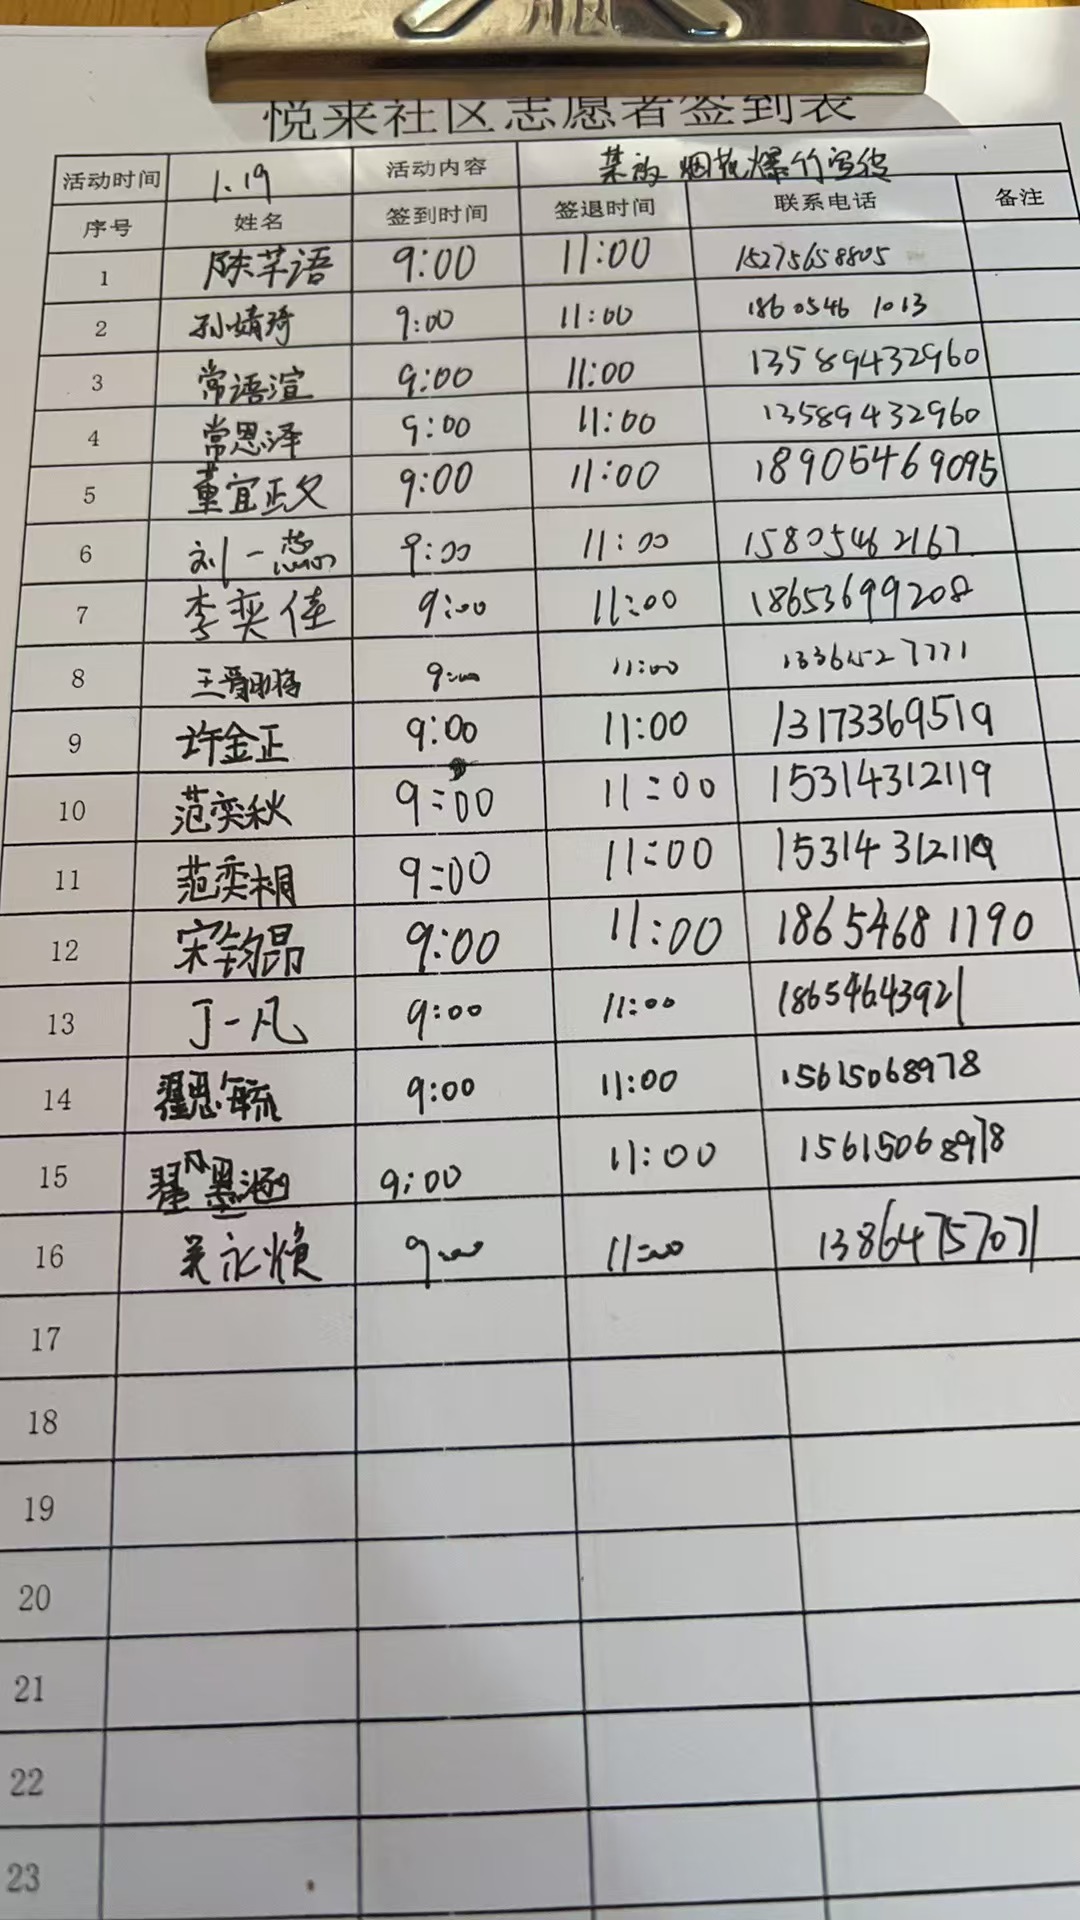 悦来社区志愿者签到表
活动时间 1.19 活动内容 禁放烟花爆竹宣传
序号 姓名 签到时间 签退时间 联系电话 备注
1 陈芊语 9:00 11:00 15275658805
2 孙婧琦 9:00 11:00 1860546 1013
3 常语渲 9:00 11:00 13589432960
4 常恩泽 9:00 11:00 13589432960
5 董宜正父 9:00 11:00 18905469095
6 刘一蕊 9:00 11:00 15805462167
7 李奕佳 9:00 11:00 18653699208
8 王 9:00 11:00
9 许金正 9:00 11:00 13173369519
10 范奕秋 9:00 11:00 15314312119
11 范奕桐 9:00 11:00 15314312119
12 宋钧昂 9:00 11:00 18654681190
13 丁一凡 9:00 11:00 18654643921
14 翟思毓 9:00 11:00 15615068978
15 翟墨涵 9:00 11:00 15615068978
16 吴永 9:00 11:00 13864757071
17
18
19
20
21
22
23